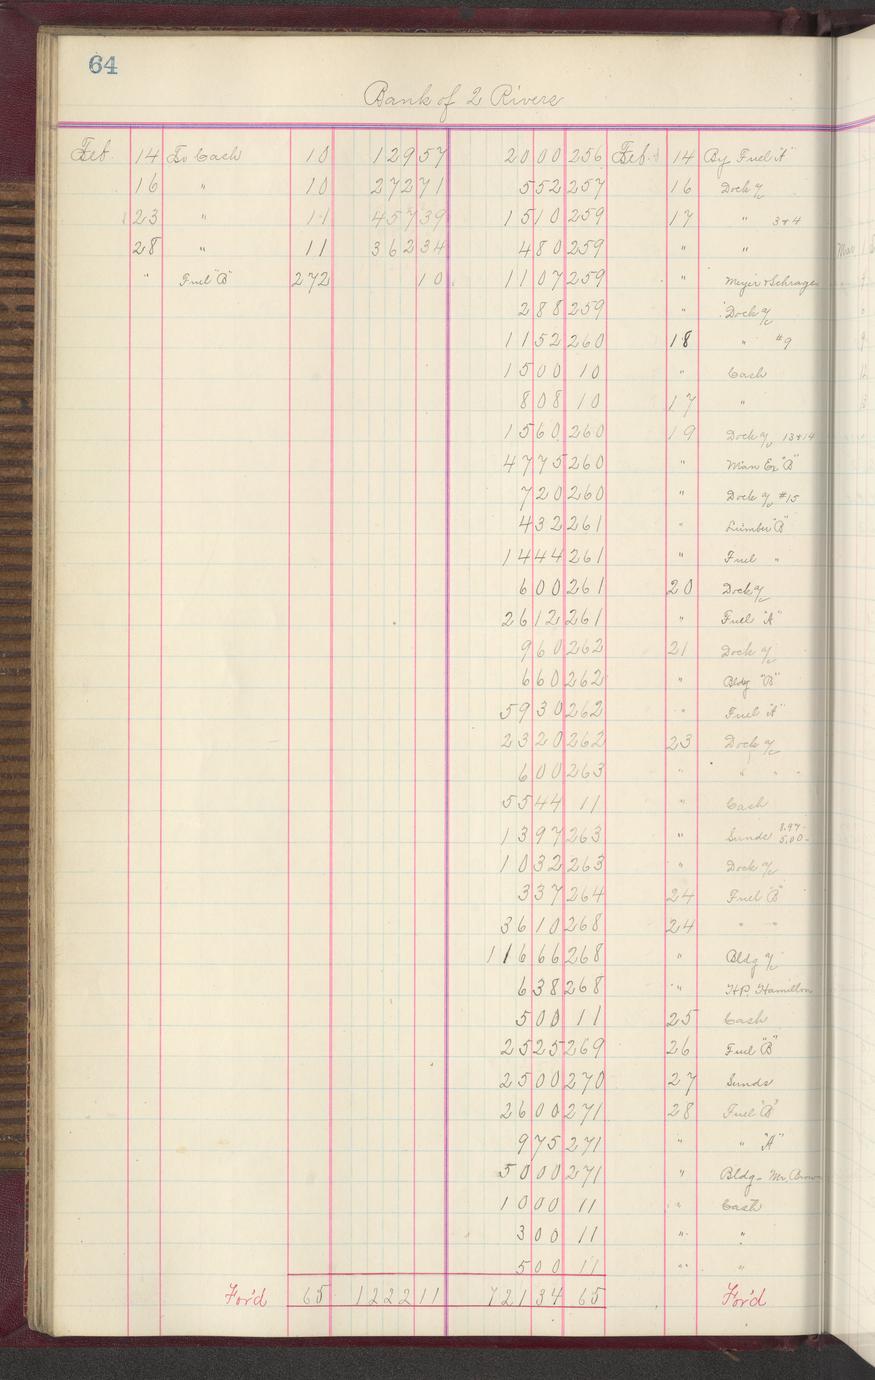 64
Bank of 2 Rivers
Feb. 14 To Cash 10 129 57 20 00 256 Feb. 14 By Fuel "A"
16 " 10 272 71 5 52 257 16 Dock a/c
23 " 11 457 39 15 10 259 17 " 3 & 4
28 " 11 362 34 4 80 259 " "
" Fuel "B" 272 10 11 07 259 " Meyer & Schrage
2 88 259 " Dock a/c
11 52 260 18 " #9
15 00 10 " Cash
8 08 10 17 "
15 60 260 19 Dock a/c 13 & 14
47 75 260 " Man Ex "B"
7 20 260 " Dock a/c #15
4 32 261 " Lumber "B"
14 44 261 " Fuel "
6 00 261 20 Dock a/c
26 12 261 " Fuel "A"
9 60 262 21 Dock a/c
6 60 262 " Bldg "B"
59 30 262 " Fuel "A"
23 20 262 23 Dock a/c
6 00 263 " " "
55 44 11 " Cash
13 97 263 " Sunds 8.97- 5.00-
10 32 263 " Dock a/c
3 37 264 24 Fuel "B"
36 10 268 24 " "
116 66 268 " Bldg a/c
6 38 268 " H.P. Hamilton
5 00 11 25 Cash
25 25 269 26 Fuel "B"
25 00 270 27 Sunds
26 00 271 28 Fuel "B"
9 75 271 " " "A"
50 00 271 " Bldg - Mr. Brown
10 00 11 " Cash
3 00 11 " "
5 00 11 " "
For'd 65 1222 11 721 34 65 For'd